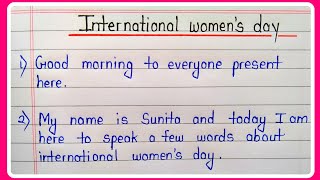 International women's day
1) Good morning to everyone present
here.
2) My name is Sunita and today I am
here to speak a few words about
international women's day.